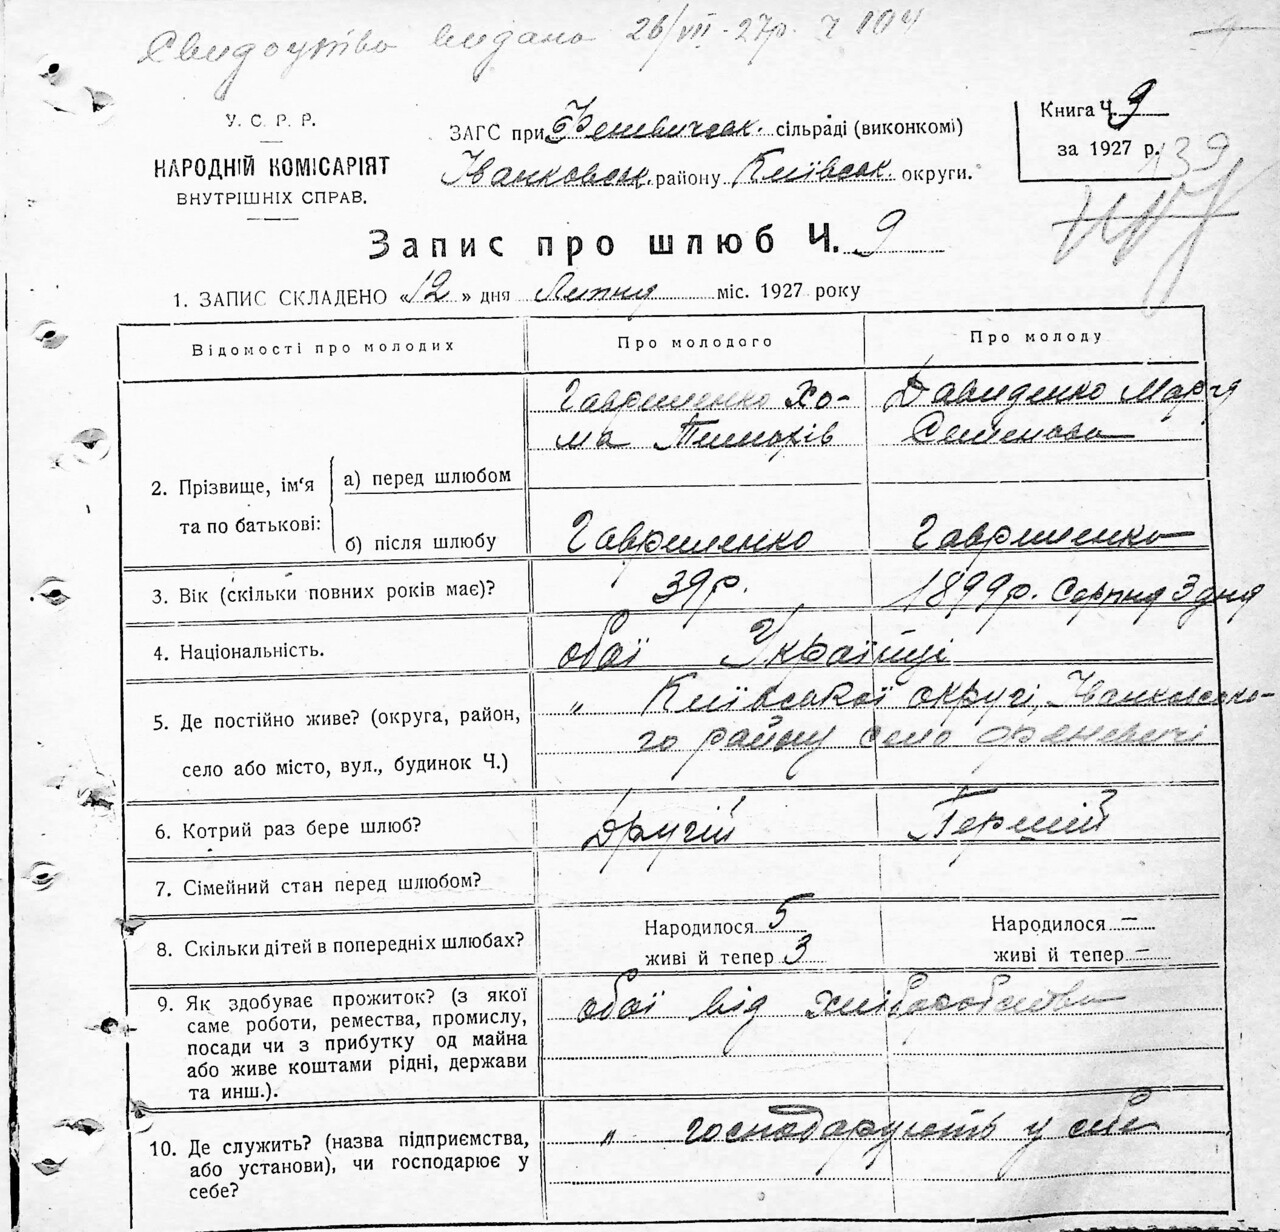 Свидоцтво видано 26/VII-27р. Ч 104
У. С. Р. Р.
НАРОДНІЙ КОМІСАРІЯТ
ВНУТРІШНІХ СПРАВ.
ЗАГС при Феневичськ. сільраді (виконкомі)
Іванковськ. району Київськ. округи.
Книга Ч. 9
за 1927 р.
139
Запис про шлюб Ч. 9
1. ЗАПИС СКЛАДЕНО «12» дня Липня міс. 1927 року
Відомості про молодих Про молодого Про молоду
2. Прізвище, ім'я та по батькові:
а) перед шлюбом
Гавриленко Хо-
ма Тимохів
Давиденко Марія
Семенова
б) після шлюбу Гавриленко Гавриленко
3. Вік (скільки повних років має)? 39р. 1899р. Серпня 3 дня
4. Національність. обої Українці
5. Де постійно живе? (округа, район,
село або місто, вул., будинок Ч.)
„ Київської округі, Іванковсько-
го району село Феневичі
6. Котрий раз бере шлюб? Другій Первий
7. Сімейний стан перед шлюбом?
8. Скільки дітей в попередніх шлюбах?
Народилося 5
живі й тепер 3
Народилося –
живі й тепер –
9. Як здобуває прожиток? (з якої
саме роботи, ремества, промислу,
посади чи з прибутку од майна
або живе коштами рідні, держави
та инш.).
обої від хліборобства
10. Де служить? (назва підприємства,
або установи), чи господарює у
себе?
„ господарують у себе